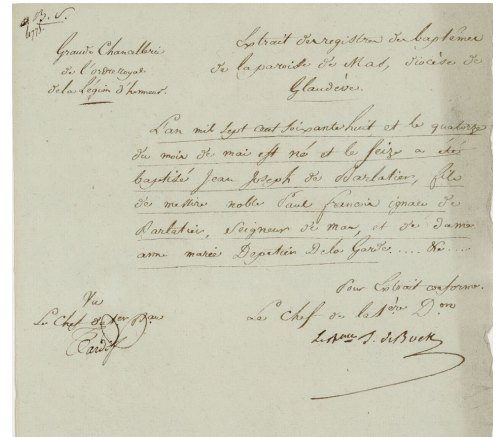 B. S.
Grande Chancellerie
de l'ordre royal
de la Légion d'honneur.
Extrait des registres des baptêmes
de la paroisse de Mas, diocèse de
Glandève.
L'an mil sept cent soixante huit et le quatorze
du mois de mai est né et le seize a été
baptisé Jean Joseph de Barlatier, fils
de messire noble Paul francois ignace de
Barlatier, Seigneur de mas, et de dame
anne marie De la Garde
Vu
Le Chef
Pour Extrait conforme.
Le Chef de la 1ère Don